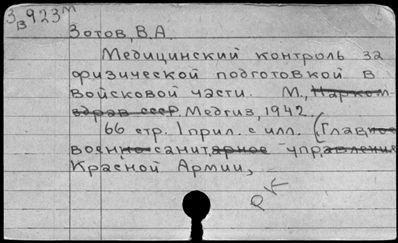 3в923м
Зотов, В.А.
Медицинский контроль за
физической подготовкой в
войсковой части. М., Нарком
здрав ссср. Медгиз, 1942.
66 стр. 1 прил. с илл. (Главное
военно-санитарное управление
Красной Армии,